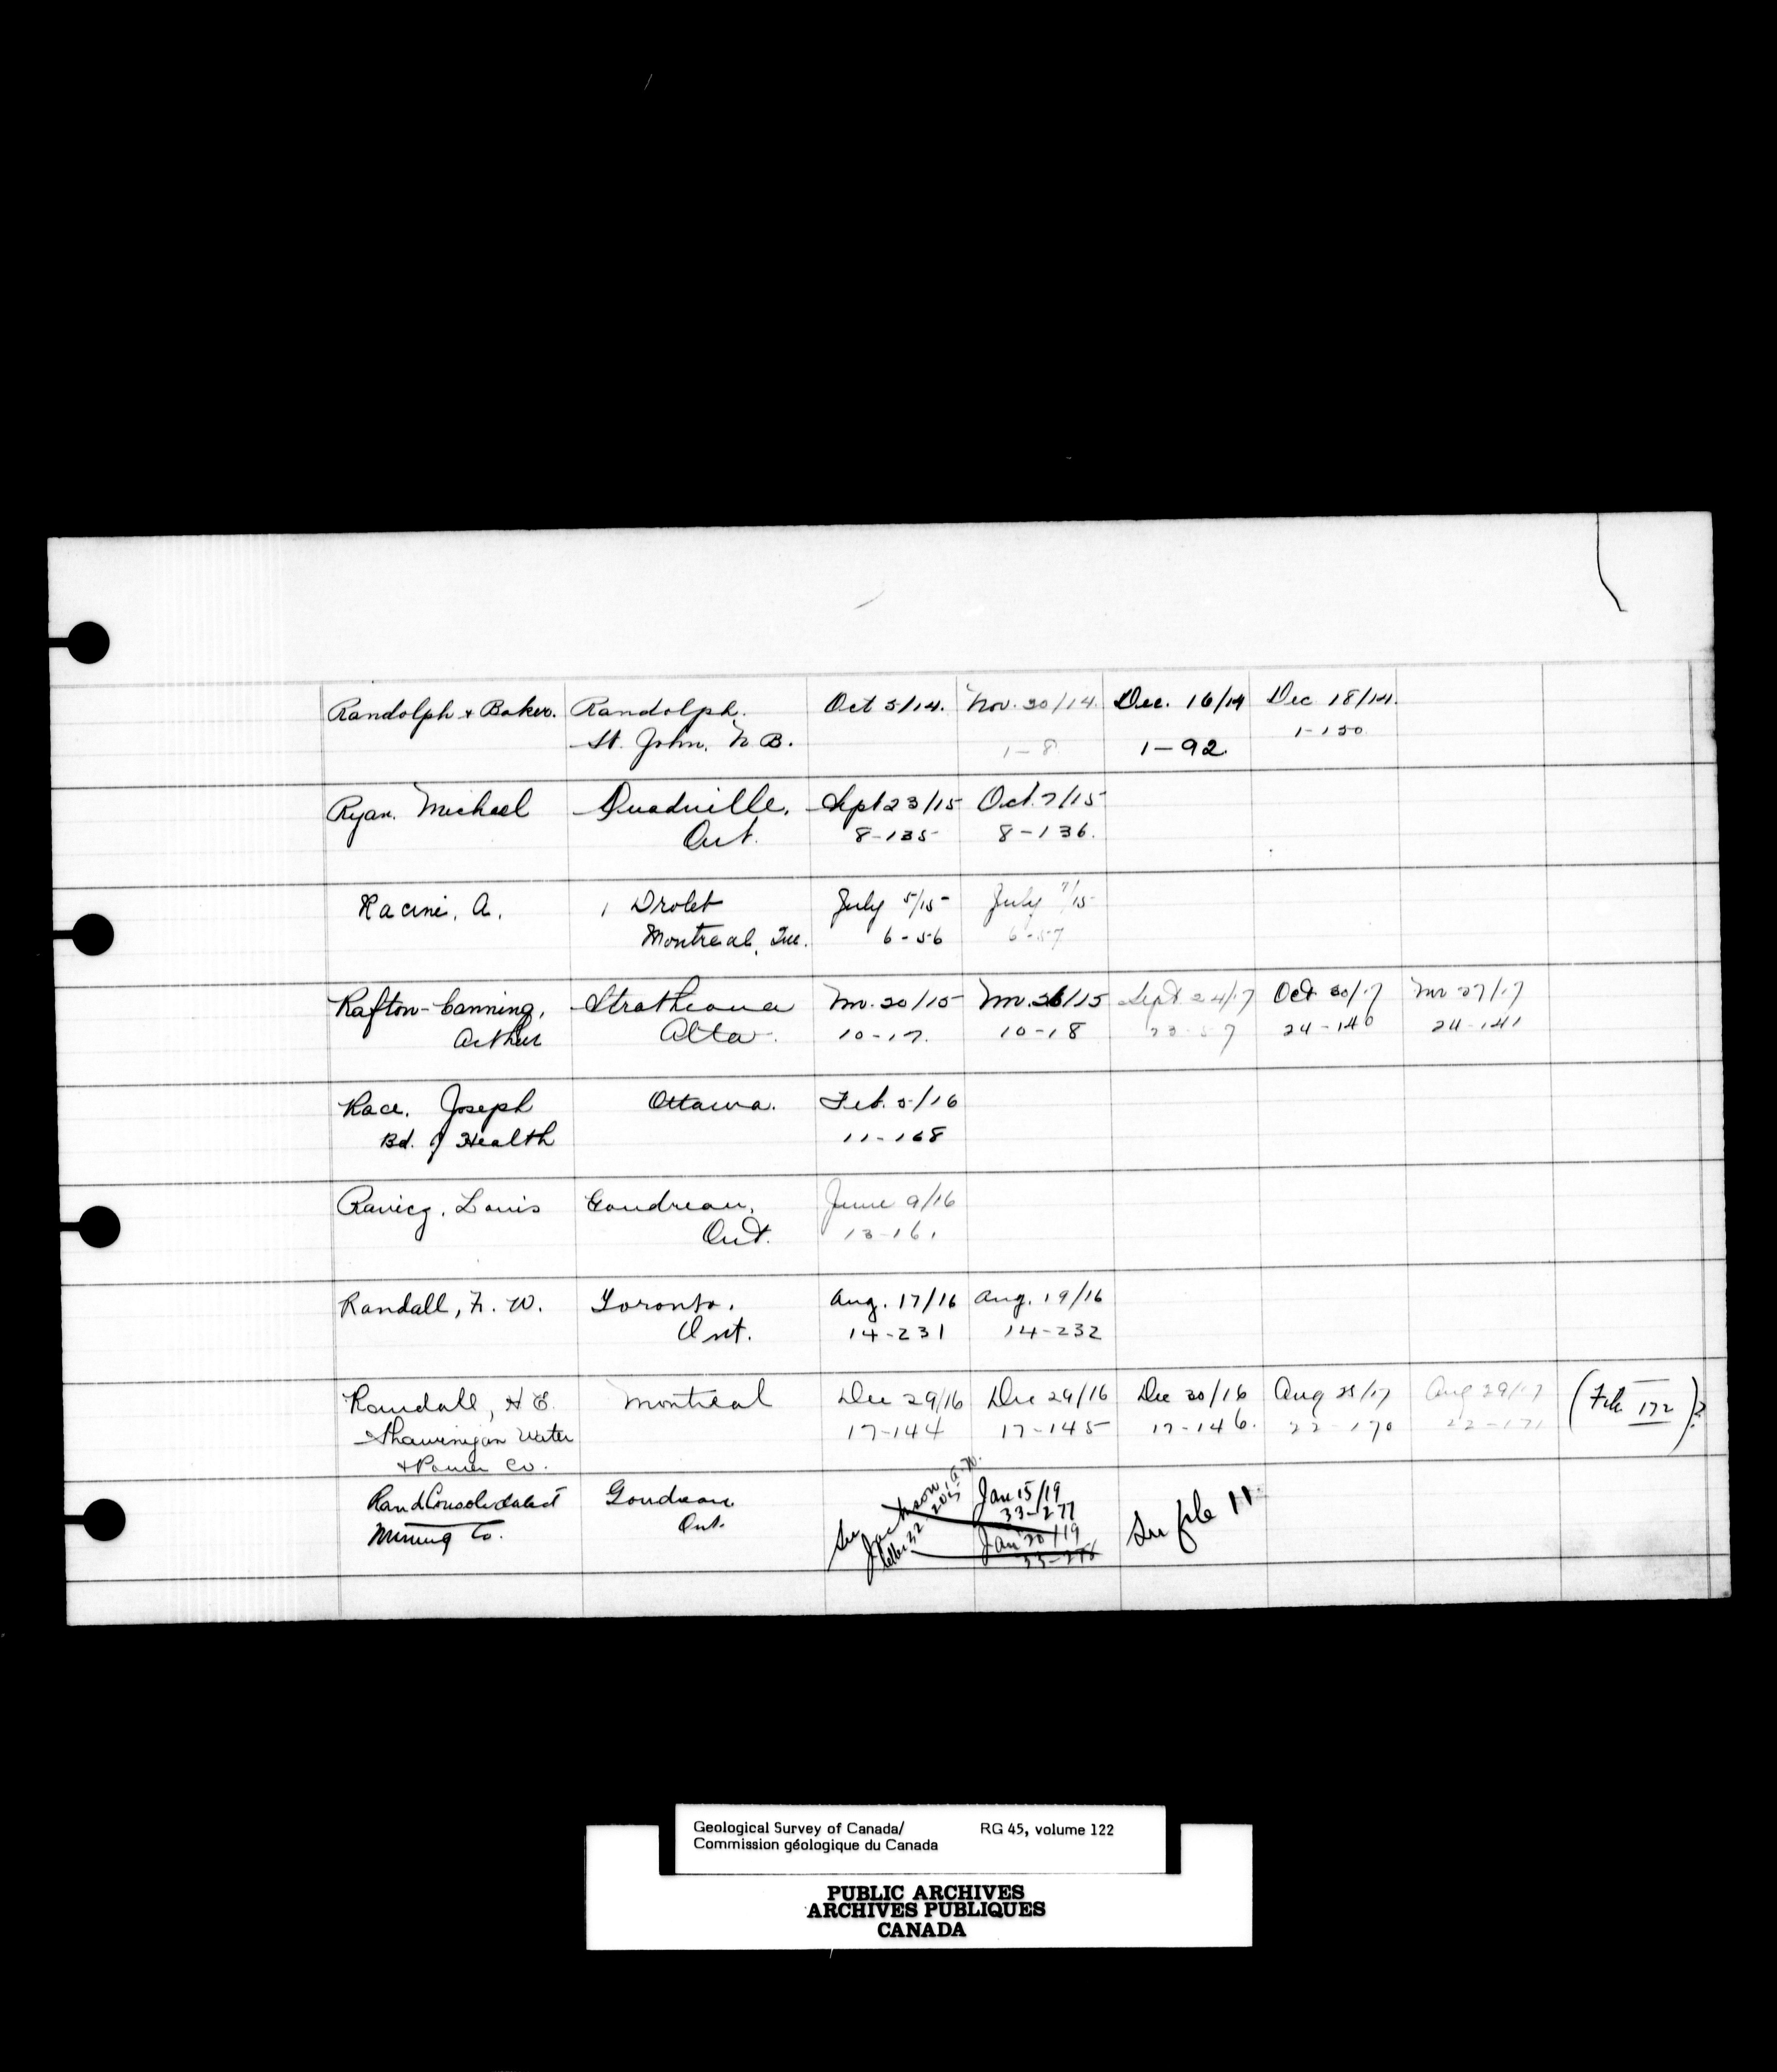 Randolph + Baker. Randolph. Oct 5/14. Nov. 30/14. Dec. 16/14 Dec 18/14.
St. John, N.B. 1-8 1-92. 1-150
Ryan, Michael Quadville, Sept 23/15 Oct. 7/15
Ont. 8-135 8-136.
Racine, A. 1 Drolet July 5/15 July 7/15
Montreal, Que. 6-56 6-57
Rafton-Canning, Strathcona Nov. 20/15 Nov. 26/15 Sept 24/17 Oct 30/17 Nov 27/17
Arthur Alta. 10-17. 10-18 23-57 24-140 24-141
Race, Joseph Ottawa. Feb. 5/16
Bd. of Health 11-168
Ravicz, Louis Goudreau, June 9/16
Ont. 13-161
Randall, F. W. Toronto, Aug. 17/16 Aug. 19/16
Ont. 14-231 14-232
Randall, H E. Montreal Dec 29/16 Dec 29/16 Dec 30/16 Aug 28/17 Aug 29/17 (File 172)?
Shawinigan Water 17-144 17-145 17-146. 22-170 22-171
+ Power Co.
Rand Consolidated Goudreau Jan 15/19
Mining Co. Ont. 33-277
See Jackson, G.W. Jan 20/19 See file 11
33-278
Geological Survey of Canada/ RG 45, volume 122
Commission géologique du Canada
PUBLIC ARCHIVES
ARCHIVES PUBLIQUES
CANADA